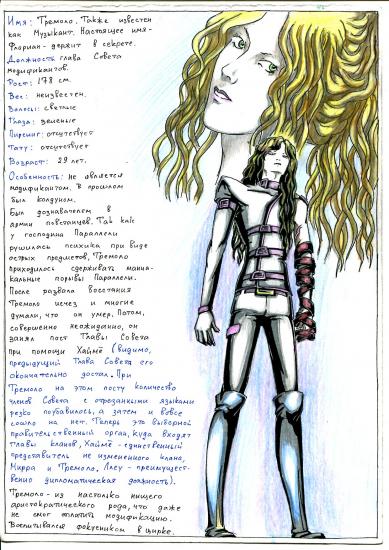 Имя: Тремоло. Также известен
как Музыкант. Настоящее имя-
Флориан-держит в секрете.
Должность: глава Совета
модификантов.
Рост: 178 см.
Вес: неизвестен.
Волосы: светлые
Глаза: зеленые
Пирсинг: отсутствует
Тату: отсутствует
Возраст: 29 лет.
Особенность: не является
модификантом. В прошлом
был колдуном.
Был дознавателем в
армии повстанцев. Так как
у господина Параллели
рушилась психика при виде
острых предметов, Тремоло
приходилось сдерживать маниа-
кальные порывы Параллели.
После развала восстания
Тремоло исчез и многие
думали, что он умер. Потом,
совершенно неожиданно, он
занял пост Главы Совета
при помощи Хаймё (видимо,
предыдущий Глава Совета его
окончательно достал. При
Тремоло на этом посту количество
членов Совета с отрезанными языками
резко поубавилось, а затем и вовсе
сошло на нет. Теперь это выборной
правительственный орган, куда входят
главы кланов, Хаймё-единственный
представитель не измененного клана,
Мирра и Тремоло. Ллеу-преимущест-
венно дипломатическая должность).
Тремоло-из настолько нищего
аристократического рода, что даже
не смог оплатить модификацию.
Воспитывался фокусником в цирке.